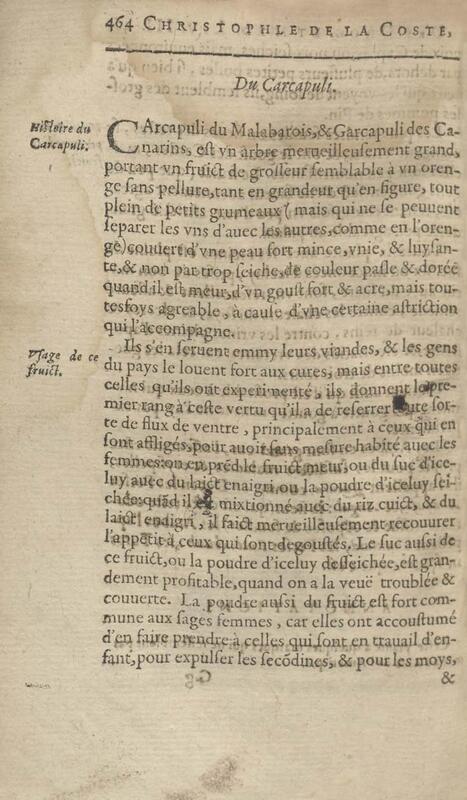 464 CHRISTOPHLE DE LA COSTE,
Du Carcapuli.
Histoire du
Carcapuli.
CArcapuli du Malabarois, & Garcapuli des Ca-
narins, est vn arbre merueilleusement grand,
portant vn fruict de grosseur semblable à vn oren-
ge sans pellure, tant en grandeur qu'en figure, tout
plein de petits grumeaux (mais qui ne se peuuent
separer les vns d'auec les autres, comme en l'oren-
ge) couuert d'vne peau fort mince, vnie, & luysan-
te, & non par trop seiche, de couleur pasle & dorée
quand il est meur, d'vn goust fort & acre, mais tou-
tesfoys agreable, à cause d'vne certaine astriction
qui l'accompagne.
Vsage de ce
fruict.
Ils s'en seruent emmy leurs viandes, & les gens
du pays le louent fort aux cures, mais entre toutes
celles qu'ils ont experimenté, ils donnent le pre-
mier rang à ceste vertu qu'il a de reserrer toute sor-
te de flux de ventre, principalement à ceux qui en
sont affligés, pour auoir sans mesure habité auec les
femmes: on en prēd le fruict meur, ou du suc d'ice-
luy auec du laict enaigri, ou la poudre d'iceluy sei-
chée: quād il est mixtionné auec du riz cuict, & du
laict endigri, il faict merueilleusement recouurer
l'appetit à ceux qui sont degoustés. Le suc aussi de
ce fruict, ou la poudre d'iceluy desseichée, est gran-
dement profitable, quand on a la veuë troublée &
couuerte. La poudre aussi du fruict est fort com-
mune aux sages femmes, car elles ont accoustumé
d'en faire prendre à celles qui sont en trauail d'en-
fant, pour expulser les secōdines, & pour les moys,
&